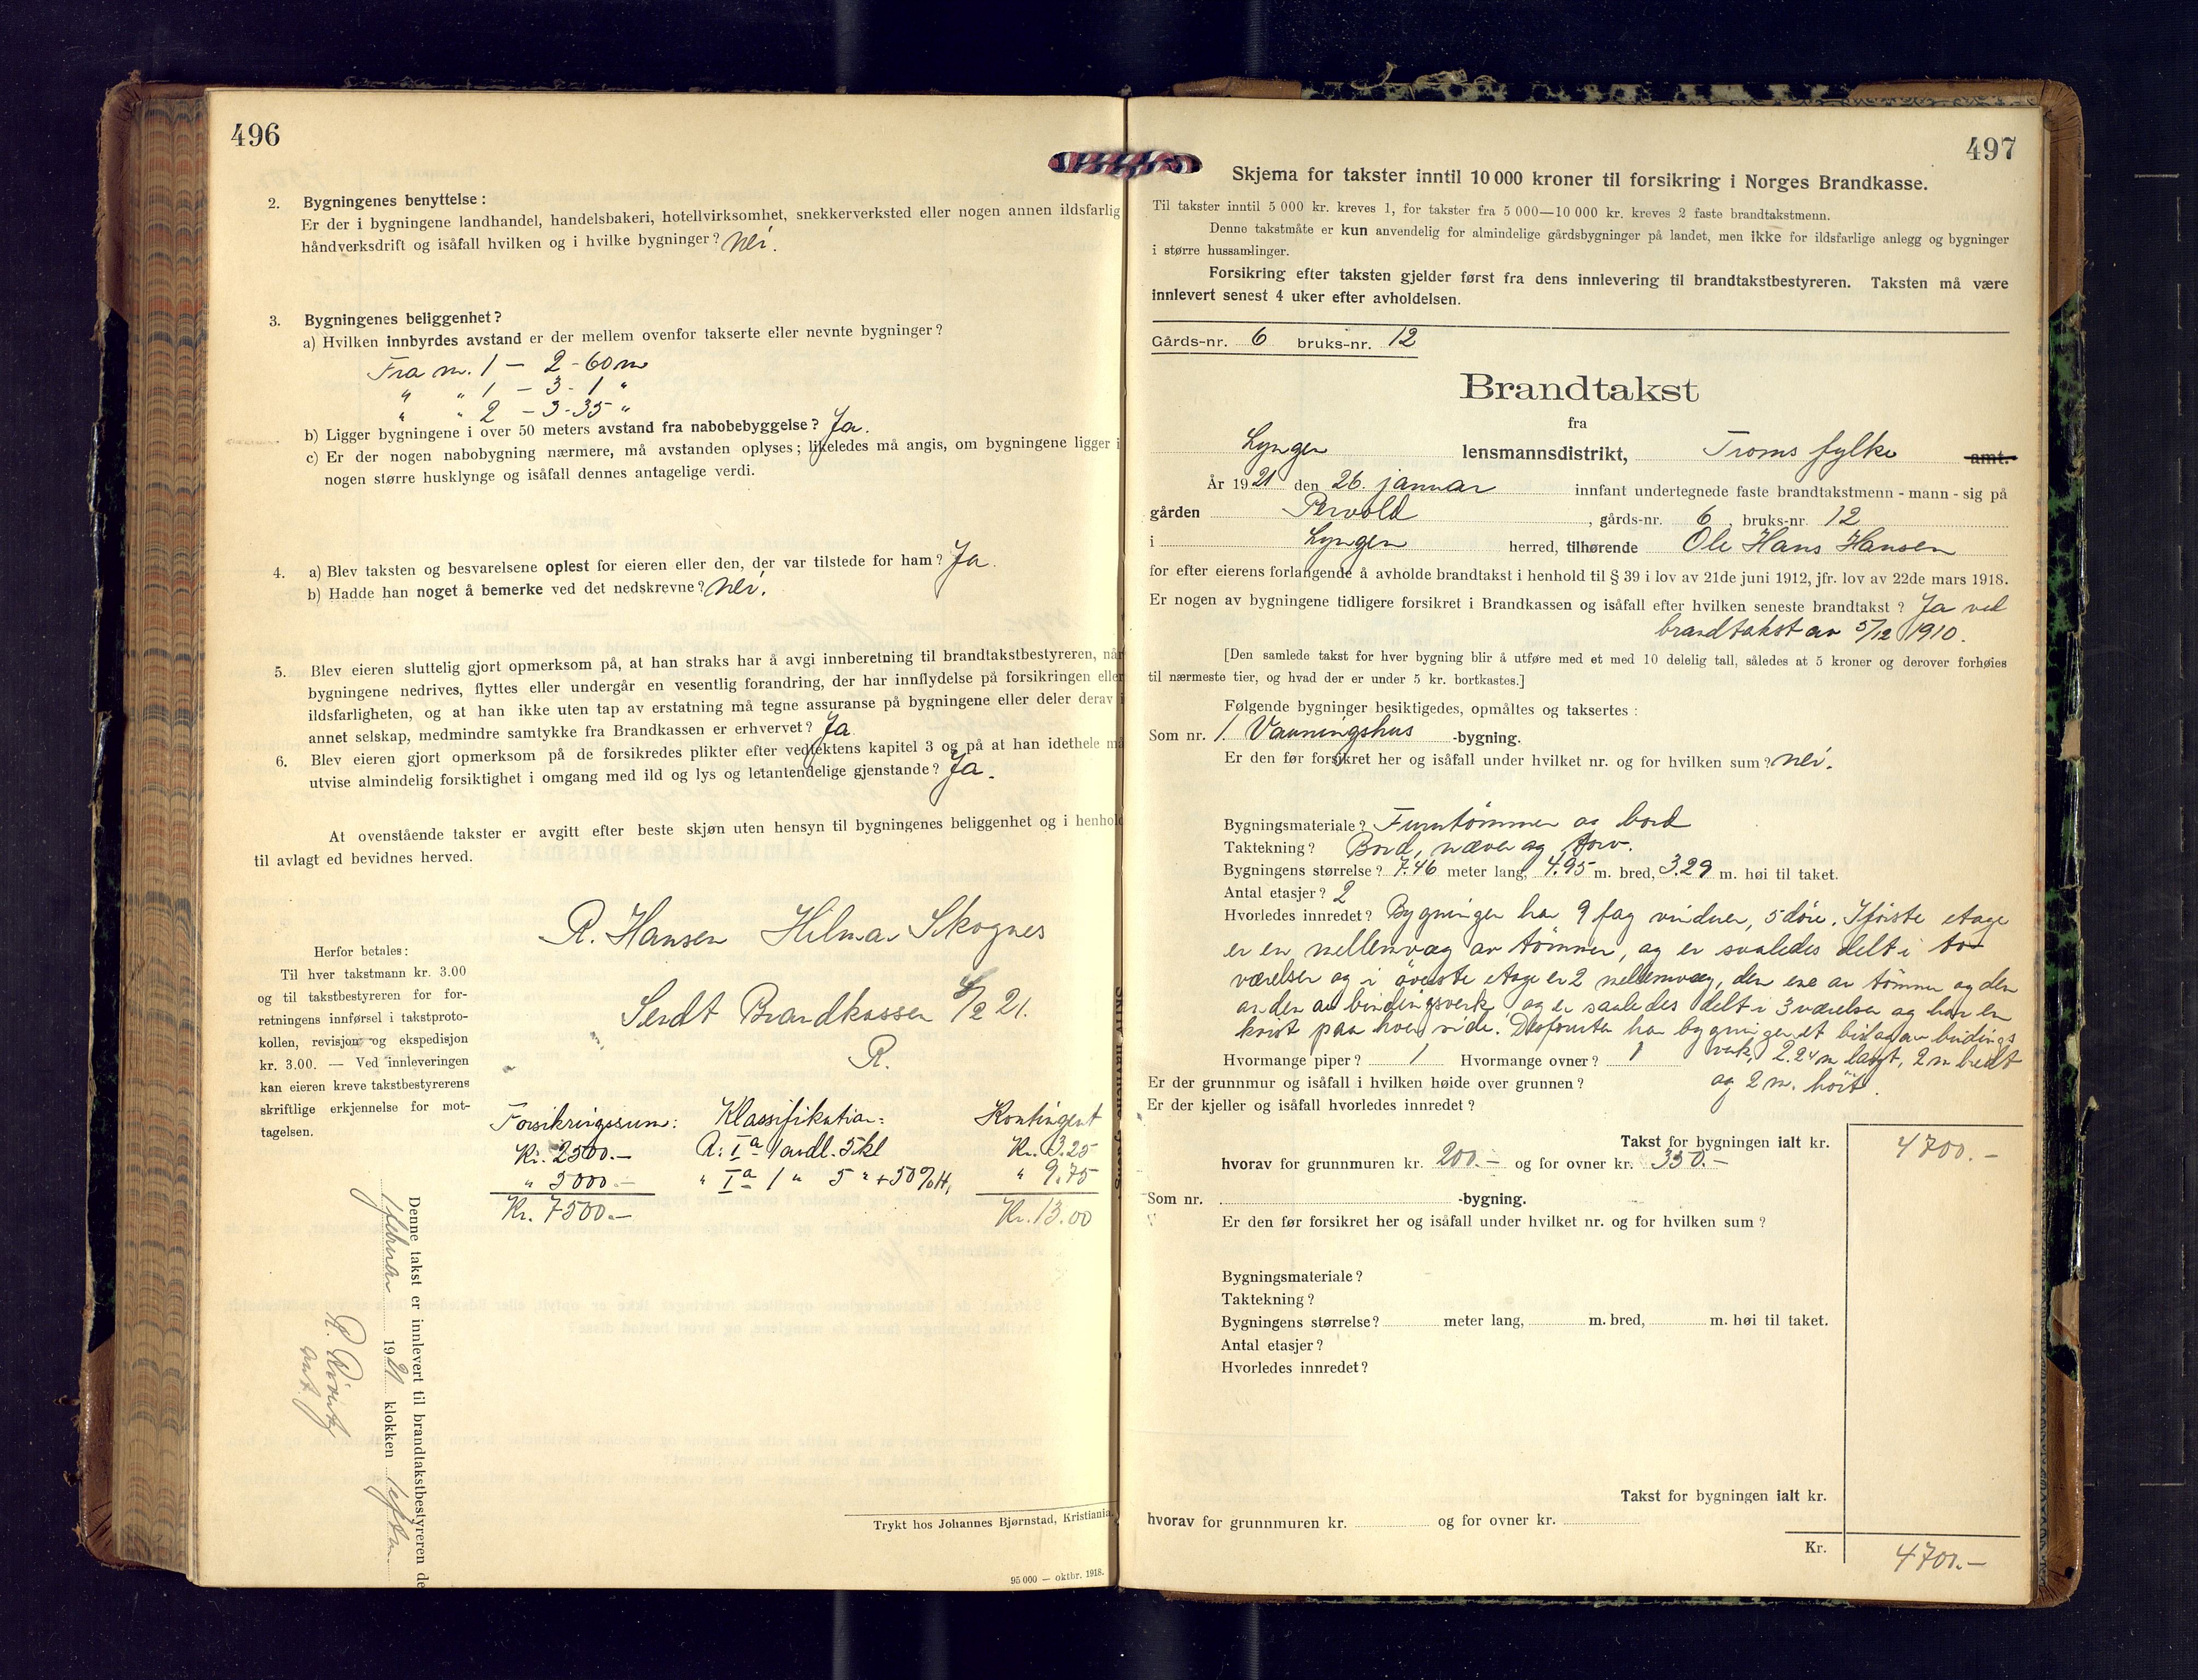 496
2. Bygningenes benyttelse:
Er der i bygningene landhandel, handelsbakeri, hotellvirksomhet, snekkerverksted eller nogen annen ildsfarlig
håndverksdrift og isåfall hvilken og i hvilke bygninger? Nei.
3. Bygningenes beliggenhet?
a) Hvilken innbyrdes avstand er der mellem ovenfor takserte eller nevnte bygninger?
Fra nr. 1 – 2 - 60 m
" " 1 – 3 - 1 "
" " 2 – 3 - 35 "
b) Ligger bygningene i over 50 meters avstand fra nabobebyggelse? Ja.
c) Er der nogen nabobygning nærmere, må avstanden oplyses; likeledes må angis, om bygningene ligger i
nogen større husklynge og isåfall dennes antagelige verdi.
4. a) Blev taksten og besvarelsene oplest for eieren eller den, der var tilstede for ham? Ja.
b) Hadde han noget å bemerke ved det nedskrevne? Nei.
5. Blev eieren sluttelig gjort opmerksom på, at han straks har å avgi innberetning til brandtakstbestyreren, når
bygningene nedrives, flyttes eller undergår en vesentlig forandring, der har innflydelse på forsikringen eller
ildsfarligheten, og at han ikke uten tap av erstatning må tegne assuranse på bygningene eller deler derav i
annet selskap, medmindre samtykke fra Brandkassen er erhvervet? Ja
6. Blev eieren gjort opmerksom på de forsikredes plikter efter vedtektens kapitel 3 og på at han idethele må
utvise almindelig forsiktighet i omgang med ild og lys og letantendelige gjenstande? Ja.
At ovenstående takster er avgitt efter beste skjøn uten hensyn til bygningenes beliggenhet og i henhold
til avlagt ed bevidnes herved.
R. Hansen Hilmar Skognes
Sendt Brandkassen 5/2 21.
R.
Herfor betales:
Til hver takstmann kr. 3.00
og til takstbestyreren for for-
retningens innførsel i takstproto-
kollen, revisjon og ekspedisjon
kr. 3.00. — Ved innleveringen
kan eieren kreve takstbestyrerens
skriftlige erkjennelse for mot-
tagelsen.
Forsikringssum: Klassifikation: Kontingent
Kr. 2500.– A: Ia 1 avdl. 5 kl Kr. 3.25
" 5000.– " Ia 1 " 5 " + 50% H, " 9.75
Kr. 7500.– Kr. 13.00
Denne takst er innlevert til brandtakstbestyreren de
1 februar 1921 klokken
Trykt hos Johannes Bjørnstad, Kristiania.
95 000 — oktbr. 1918.
497
Skjema for takster inntil 10 000 kroner til forsikring i Norges Brandkasse.
Til takster inntil 5 000 kr. kreves 1, for takster fra 5 000—10 000 kr. kreves 2 faste brandtakstmenn.
Denne takstmåte er kun anvendelig for almindelige gårdsbygninger på landet, men ikke for ildsfarlige anlegg og bygninger
i større hussamlinger.
Forsikring efter taksten gjelder først fra dens innlevering til brandtakstbestyreren. Taksten må være
innlevert senest 4 uker efter avholdelsen.
Gårds-nr. 6 bruks-nr. 12
Brandtakst
fra
Lyngen lensmannsdistrikt, Troms fylke amt.
År 1921 den 26. januar innfant undertegnede faste brandtakstmenn - mann - sig på
gården Pervold, gårds-nr. 6, bruks-nr. 12
i Lyngen herred, tilhørende Ole Hans Hansen
for efter eierens forlangende å avholde brandtakst i henhold til § 39 i lov av 21de juni 1912, jfr. lov av 22de mars 1918.
Er nogen av bygningene tidligere forsikret i Brandkassen og isåfall efter hvilken seneste brandtakst? Ja ved
brandtakst av 5/12 1910.
[Den samlede takst for hver bygning blir å utføre med et med 10 delelig tall, således at 5 kroner og derover forhøies
til nærmeste tier, og hvad der er under 5 kr. bortkastes.]
Følgende bygninger besiktigedes, opmåltes og taksertes:
Som nr. 1. Vaaningshus -bygning.
Er den før forsikret her og isåfall under hvilket nr. og for hvilken sum? Nei.
Bygningsmateriale? Furutømmer og bord
Taktekning? Bord, næver og torv.
Bygningens størrelse? 7.46 meter lang, 4.95 m. bred, 3.29 m. høi til taket.
Antal etasjer? 2
Hvorledes innredet? Bygningen har 9 fag vinduer, 5 døre. I første etage
er en mellemvæg av tømmer, og er saaledes delt i to
værelser og i øverste etage er 2 mellemvæg, den ene av tømmer og den
anden av bindingsverk, og er saaledes delt i 3 værelser og har en
kvist paa hver side. Desforuten har bygningen et bislag av bindings
verk, 2.24 m langt, 2 m bredt
Hvormange piper? 1 Hvormange ovner? 1
og 2 m. høit.
Er der grunnmur og isåfall i hvilken høide over grunnen?
Er der kjeller og isåfall hvorledes innredet?
Takst for bygningen ialt kr. 4700.–
hvorav for grunnmuren kr. 200.– og for ovner kr. 350.–
Som nr. -bygning.
Er den før forsikret her og isåfall under hvilket nr. og for hvilken sum?
Bygningsmateriale?
Taktekning?
Bygningens størrelse? meter lang, m. bred, m. høi til taket.
Antal etasjer?
Hvorledes innredet?
Takst for bygningen ialt kr.
hvorav for grunnmuren kr. og for ovner kr.
Kr. 4700.–